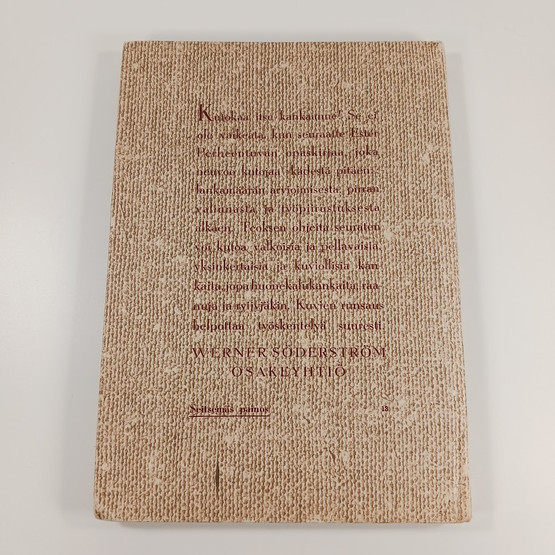 Kutokaa itse kankaanne! Se ei
ole vaikeata, kun seuraatte Ester
Perheentuvan opaskirjaa, joka
neuvoo kutojaa kädestä pitäen:
lankamäärän arvioimisesta, pirran
valinnasta ja työpiirustuksesta
alkaen. Teoksen ohjeita seuraten
voi kutoa valkoisia ja pellavaisia
yksinkertaisia ja kuviollisia kan-
kaita, jopa huonekalukankaita, raa-
nuja ja ryijyjäkin. Kuvien runsaus
helpottaa työskentelyä suuresti.
WERNER SÖDERSTRÖM
OSAKEYHTIÖ
Seitsemäs painos